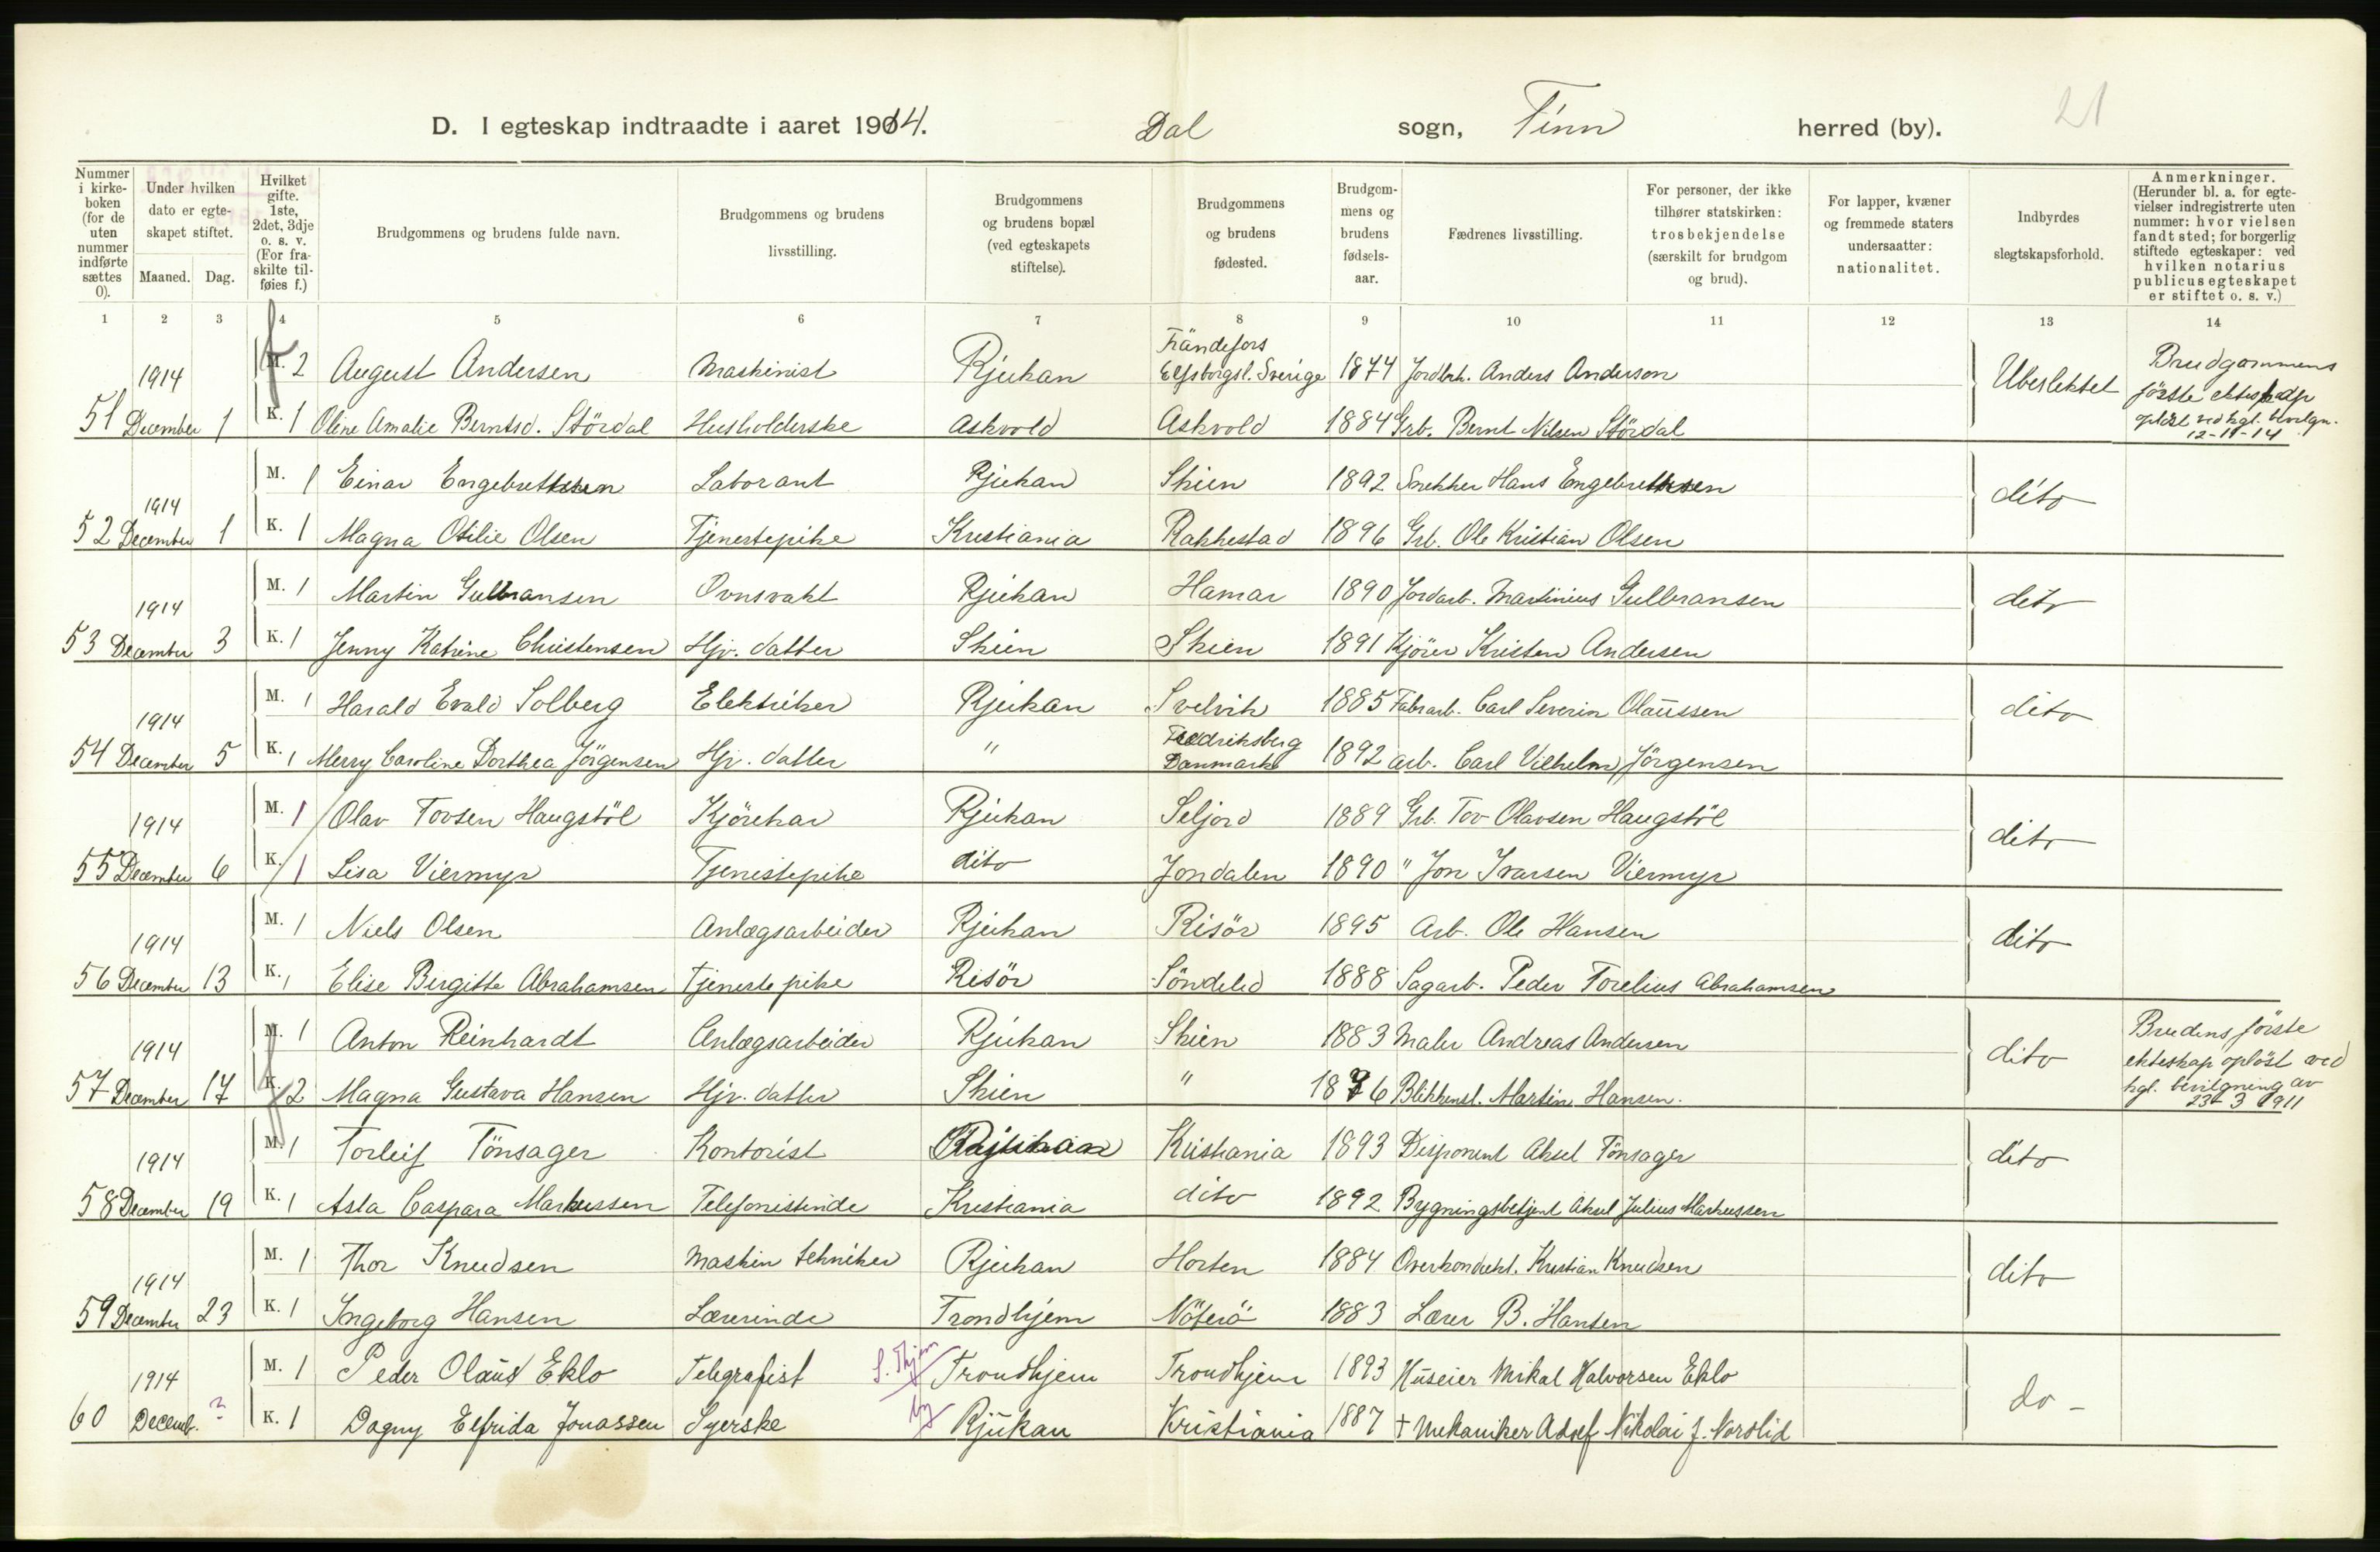 21
D. I egteskap indtraadte i aaret 1914. Dal sogn, Tinn herred (by).
Nummer i kirke-boken (for de uten nummer indførte sættes 0).
Under hvilken dato er egte-skapet stiftet.
Maaned. Dag.
Hvilket gifte. 1ste, 2det, 3dje o. s. v. (For fra-skilte til-føies f.)
Brudgommens og brudens fulde navn.
Brudgommens og brudens livsstilling.
Brudgommens og brudens bopæl (ved egteskapets stiftelse).
Brudgommens og brudens fødested.
Brudgom-mens og brudens fødsels-aar.
Fædrenes livsstilling.
For personer, der ikke tilhører statskirken: trosbekjendelse (særskilt for brudgom og brud).
For lapper, kvæner og fremmede staters undersaatter: nationalitet.
Indbyrdes slegtskapsforhold.
Anmerkninger. (Herunder bl. a. for egte-vielser indregistrerte uten nummer: hvor vielsen fandt sted; for borgerlig stiftede egteskaper: ved hvilken notarius publicus egteskapet er stiftet o. s. v.)
1 2 3 4 5 6 7 8 9 10 11 12 13 14
1914 M. f 2 August Andersen Maskinist Rjukan Frändefors Elfsborgsl. Sverige 1874 Jordbr. Anders Anderson Ubeslektet Brudgommens første ekteskap opløst ved kgl. bevilgn. 12-11-14
51 December 1 K. 1 Oline Amalie Berntsd. Stördal Husholderske Askvold Askvold 1884 Grb. Bernt Nilsen Stördal
1914 M. 1 Einar Engebrethsen Laborant Rjukan Skien 1892 Snekker Hans Engebrethsen dito
52 December 1 K. 1 Magna Otilie Olsen Tjenestepike Kristiania Rakkestad 1896 Grb. Ole Kristian Olsen
1914 M. 1 Martin Gulbransen Ovnsvakt Rjukan Hamar 1890 Jordarb. Martinius Gulbransen dito
53 December 3 K. 1 Jenny Katrine Christensen Hjv. datter Skien Skien 1891 Kjörer Kristen Andersen
1914 M. 1 Harald Evald Solberg Elektriker Rjukan Svelvik 1885 Fabrarb. Carl Severin Olaussen dito
54 December 5 K. 1 Merry Caroline Dorthea Jörgensen Hjv. datter " Fredriksberg Danmark 1892 arb. Carl Vilhelm Jörgensen
1914 M. 1 Olav Tovsen Haugstöl Kjörekar Rjukan Seljord 1889 Grb. Tov Olavsen Haugstöl dito
55 December 6 K. 1 Lisa Viermyr Tjenestepike dito Jondalen 1890 " Jon Ivarsen Viermyr
1914 M. 1 Niels Olsen Anlægsarbeider Rjukan Risör 1895 Arb. Ole Hansen dito
56 December 13 K. 1 Elise Birgitte Abrahamsen Tjenestepike Risör Söndeled 1888 Sagarb. Peder Torelius Abrahamsen
1914 M. 1 Anton Reinhardt Anlægsarbeider Rjukan Skien 1883 Maler Andreas Andersen dito Brudens förste ekteskap oplöst ved kgl. bevilgning av 23-3 1911
57 December 17 K. f 2 Magna Gustava Hansen Hjv. datter Skien " 1876 Blikkensl. Martin Hansen.
1914 M. 1 Torleif Tönsager Kontorist Rjukan Kristiania 1893 Disponent Aksel Tönsager dito
58 December 19 K. 1 Asta Caspara Markussen Telefonistinde Kristiania dito 1892 Bygningsbetjent Aksel Julius Markussen
1914 M. 1 Thor Knudsen Maskin tekniker Rjukan Horten 1884 Overkondukt. Kristian Knudsen dito
59 December 23 K. 1 Ingeborg Hansen Lærerinde Trondhjem Nöterö 1883 Lærer B. Hansen
1914 M. 1 Peder Olaus Eklo Telegrafist S. Thjem Trondhjem Trondhjem 1893 Huseier Mikal Halvorsen Eklo do -
60 Decemb. ? K. 1 Dagny Elfrida Jonassen Syerske by Rjukan Kristiania 1887 † Mekaniker Adolf Nikolai J. Nordlid